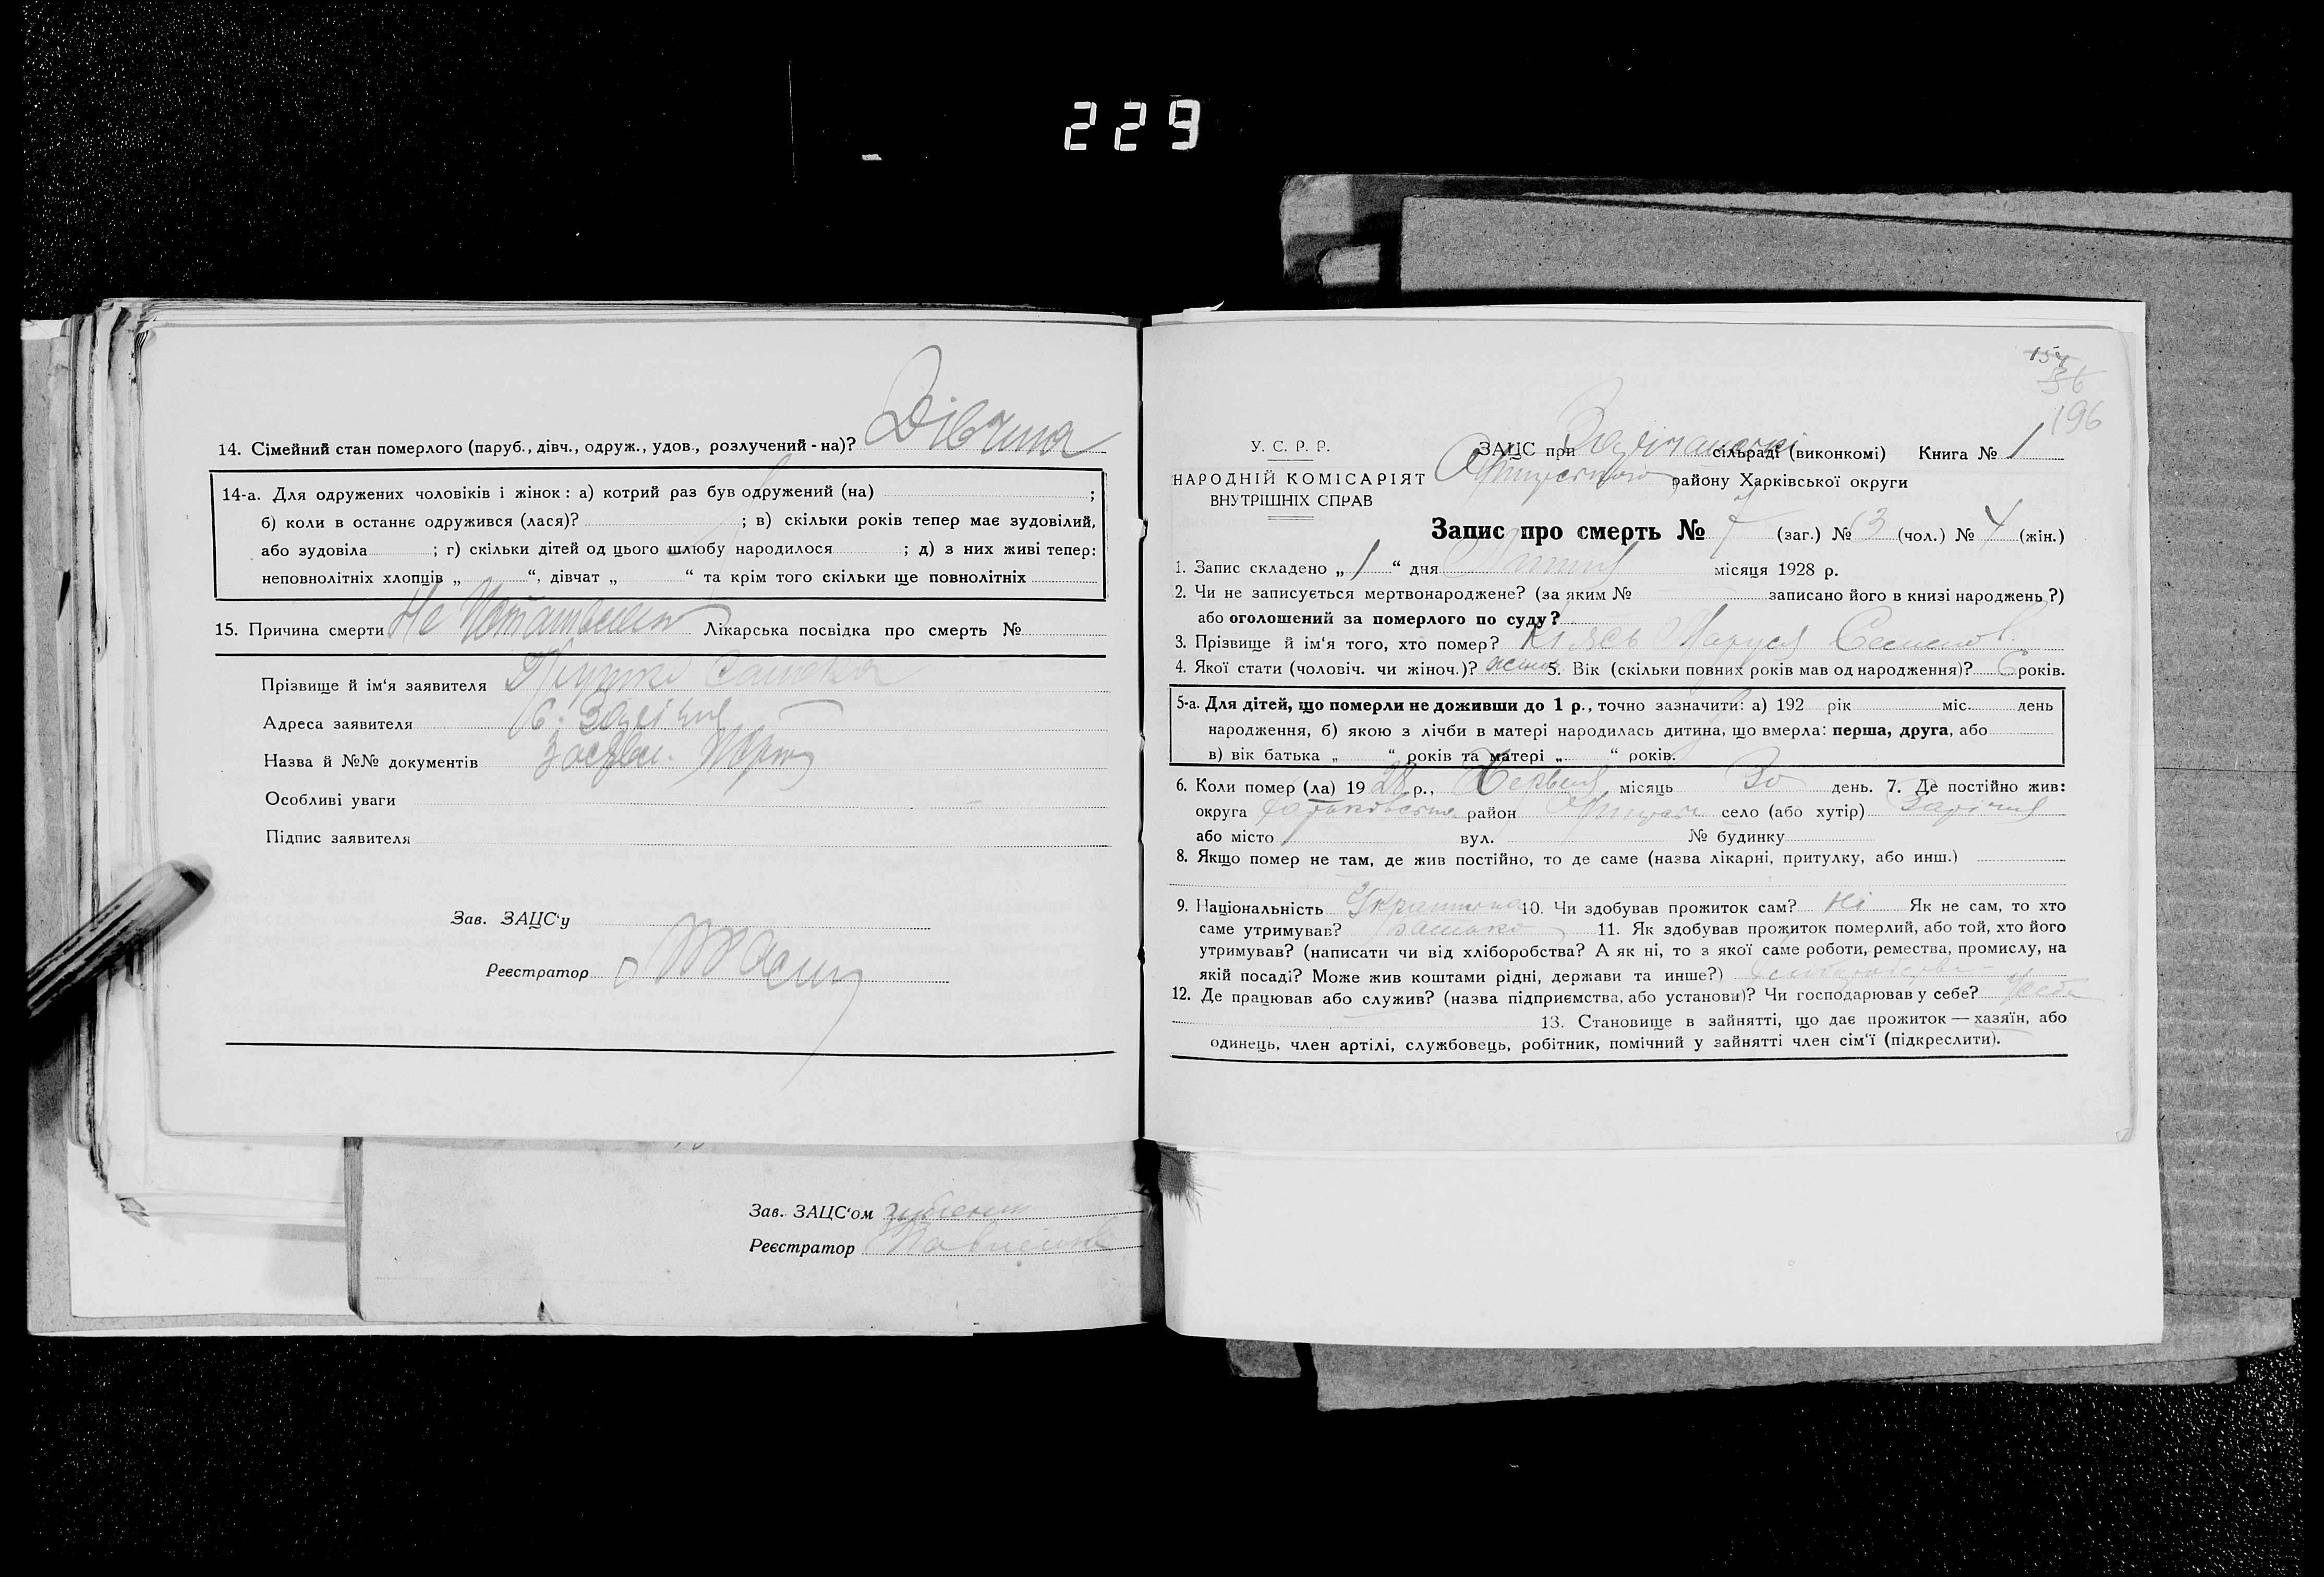 229
14. Сімейний стан померлого (паруб., дівч., одруж., удов., розлучений - на)? Дівчина
14-а. Для одружених чоловіків і жінок: а) котрий раз був одружений (на) ;
б) коли в останнє одружився (лася)? ; в) скільки років тепер має зудовілий,
або зудовіла ; г) скільки дітей од цього шлюбу народилося ; д) з них живі тепер:
неповнолітніх хлопців „ “, дівчат „ “ та крім того скільки ще повнолітніх
15. Причина смерти Не Лікарська посвідка про смерть №
Прізвище й ім'я заявителя
Адреса заявителя
Назва й №№ документів
Особливі уваги
Підпис заявителя
Зав. ЗАЦС'у
Реєстратор
Зав. ЗАЦС'ом
Реєстратор
154
36
196
У. С. Р. Р.
НАРОДНІЙ КОМІСАРІЯТ
ВНУТРІШНІХ СПРАВ
ЗАЦС при сільраді (виконкомі) Книга № 1
району Харківської округи
Запис про смерть № 7 (заг.) № 3 (чол.) № 4 (жін.)
1. Запис складено „ 1 “ дня місяця 1928 р.
2. Чи не записується мертвонароджене? (за яким № записано його в книзі народжень?)
або оголошений за померлого по суду?
3. Прізвище й ім'я того, хто помер? Маруся
4. Якої стати (чоловіч. чи жіноч.)? жіноч 5. Вік (скільки повних років мав од народження)? 6 років.
5-а. Для дітей, що померли не доживши до 1 р., точно зазначити: а) 192 рік міс. день
народження, б) якою з лічби в матері народилась дитина, що вмерла: перша, друга, або
в) вік батька „ “ років та матері „ “ років.
6. Коли помер (ла) 1928 р., Червня місяць 30 день. 7. Де постійно жив:
округа район село (або хутір)
або місто вул. № будинку
8. Якщо помер не там, де жив постійно, то де саме (назва лікарні, притулку, або инш.)
9. Національність Українка 10. Чи здобував прожиток сам? Ні Як не сам, то хто
саме утримував? батько 11. Як здобував прожиток померлий, або той, хто його
утримував? (написати чи від хліборобства? А як ні, то з якої саме роботи, ремества, промислу, на
якій посаді? Може жив коштами рідні, держави та инше?)
12. Де працював або служив? (назва підприємства, або установи)? Чи господарював у себе? У себе
13. Становище в зайнятті, що дає прожиток — хазяїн, або
одинець, член артілі, службовець, робітник, помічний у зайнятті член сім'ї (підкреслити).